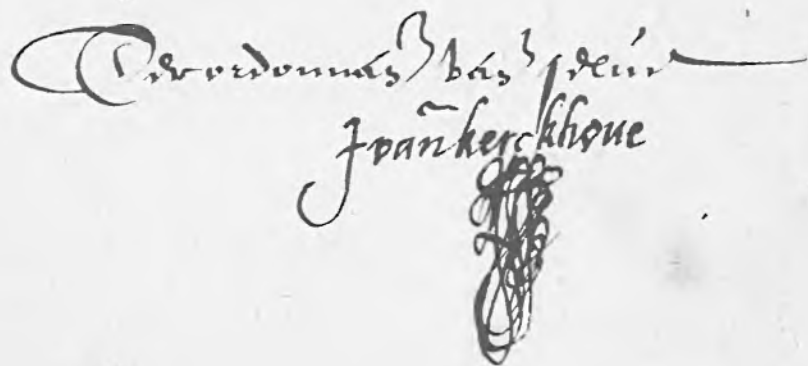 Ter ordonnan van
J van kerckhove